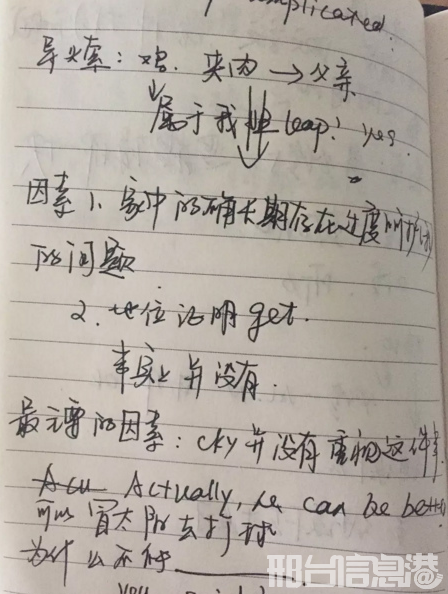 complicated.
导火索：鸡 夹肉 → 父亲
属于我 leap? yes.
因素 1、家中的确长期存在过度
的问题
2. 地位证明 get.
事实上并没有.
最主要的因素：cky并没有重视这件事.
Actually, can be better
可以 去打球
为什么不
邢台信息港